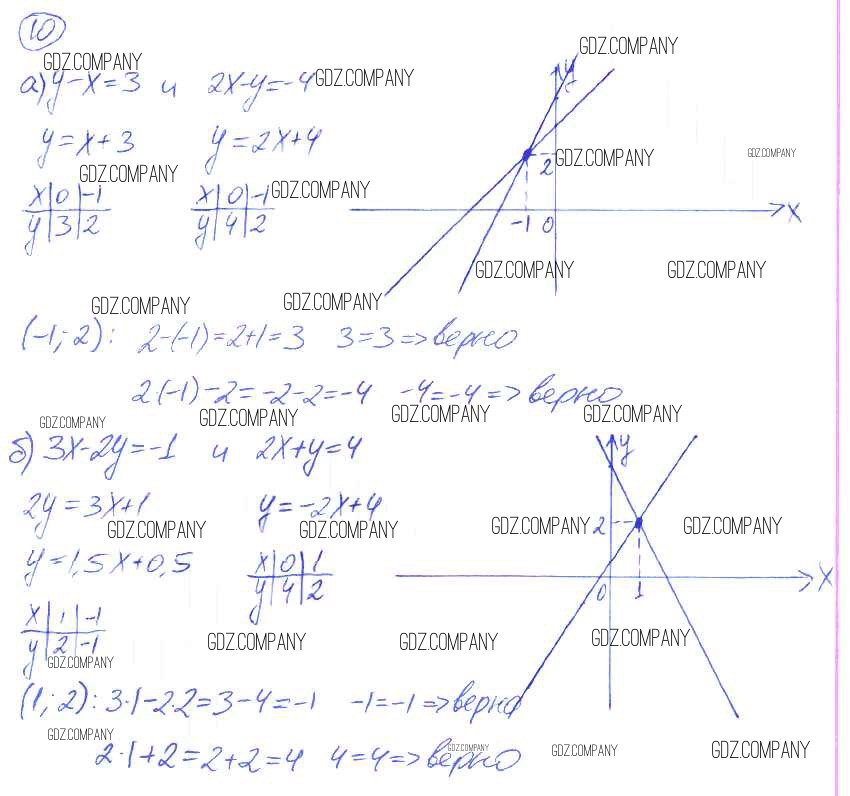 10
GDZ.COMPANY
GDZ.COMPANY
а) y-x=3 и 2x-y=-4
GDZ.COMPANY
y=x+3 y=2x+4
GDZ.COMPANY
GDZ.COMPANY
GDZ.COMPANY
GDZ.COMPANY
x|0|-1 x|0|-1
y|3|2 y|4|2
y
2
-1 0
x
GDZ.COMPANY
GDZ.COMPANY
GDZ.COMPANY
GDZ.COMPANY
(-1; 2): 2-(-1)=2+1=3 3=3=>верно
2·(-1)-2=-2-2=-4 -4=-4=>верно
GDZ.COMPANY
GDZ.COMPANY
GDZ.COMPANY
GDZ.COMPANY
б) 3x-2y=-1 и 2x+y=4
2y=3x+1 y=-2x+4
GDZ.COMPANY
GDZ.COMPANY
GDZ.COMPANY
GDZ.COMPANY
y=1,5x+0,5 x|0|1
y|4|2
x|1|-1
y|2|-1
y
2
0 1
x
GDZ.COMPANY
GDZ.COMPANY
GDZ.COMPANY
GDZ.COMPANY
(1; 2): 3·1-2·2=3-4=-1 -1=-1=>верно
GDZ.COMPANY
2·1+2=2+2=4 4=4=>верно
GDZ.COMPANY
GDZ.COMPANY
GDZ.COMPANY